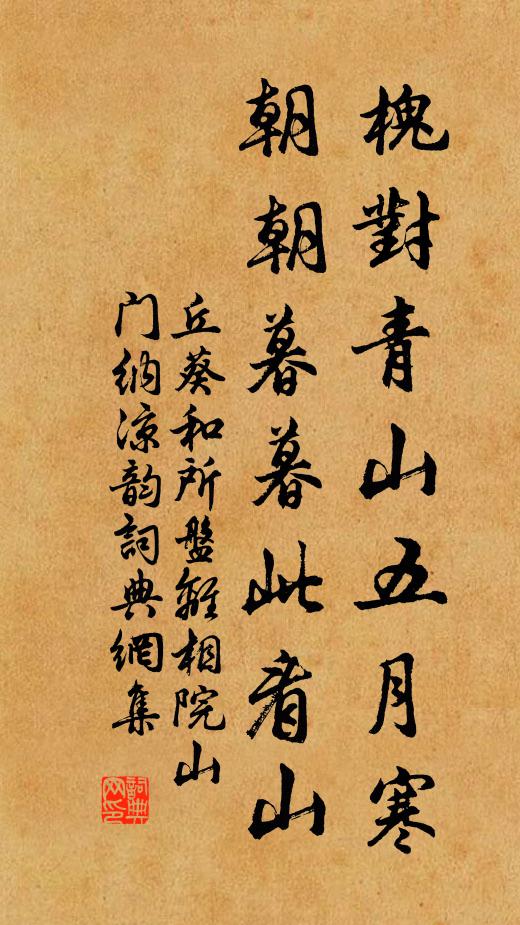 槐對青山五月寒
朝朝暮暮此看山
丘葵和所盤離相院山
门纳凉韵詞典網集
詞典
网印